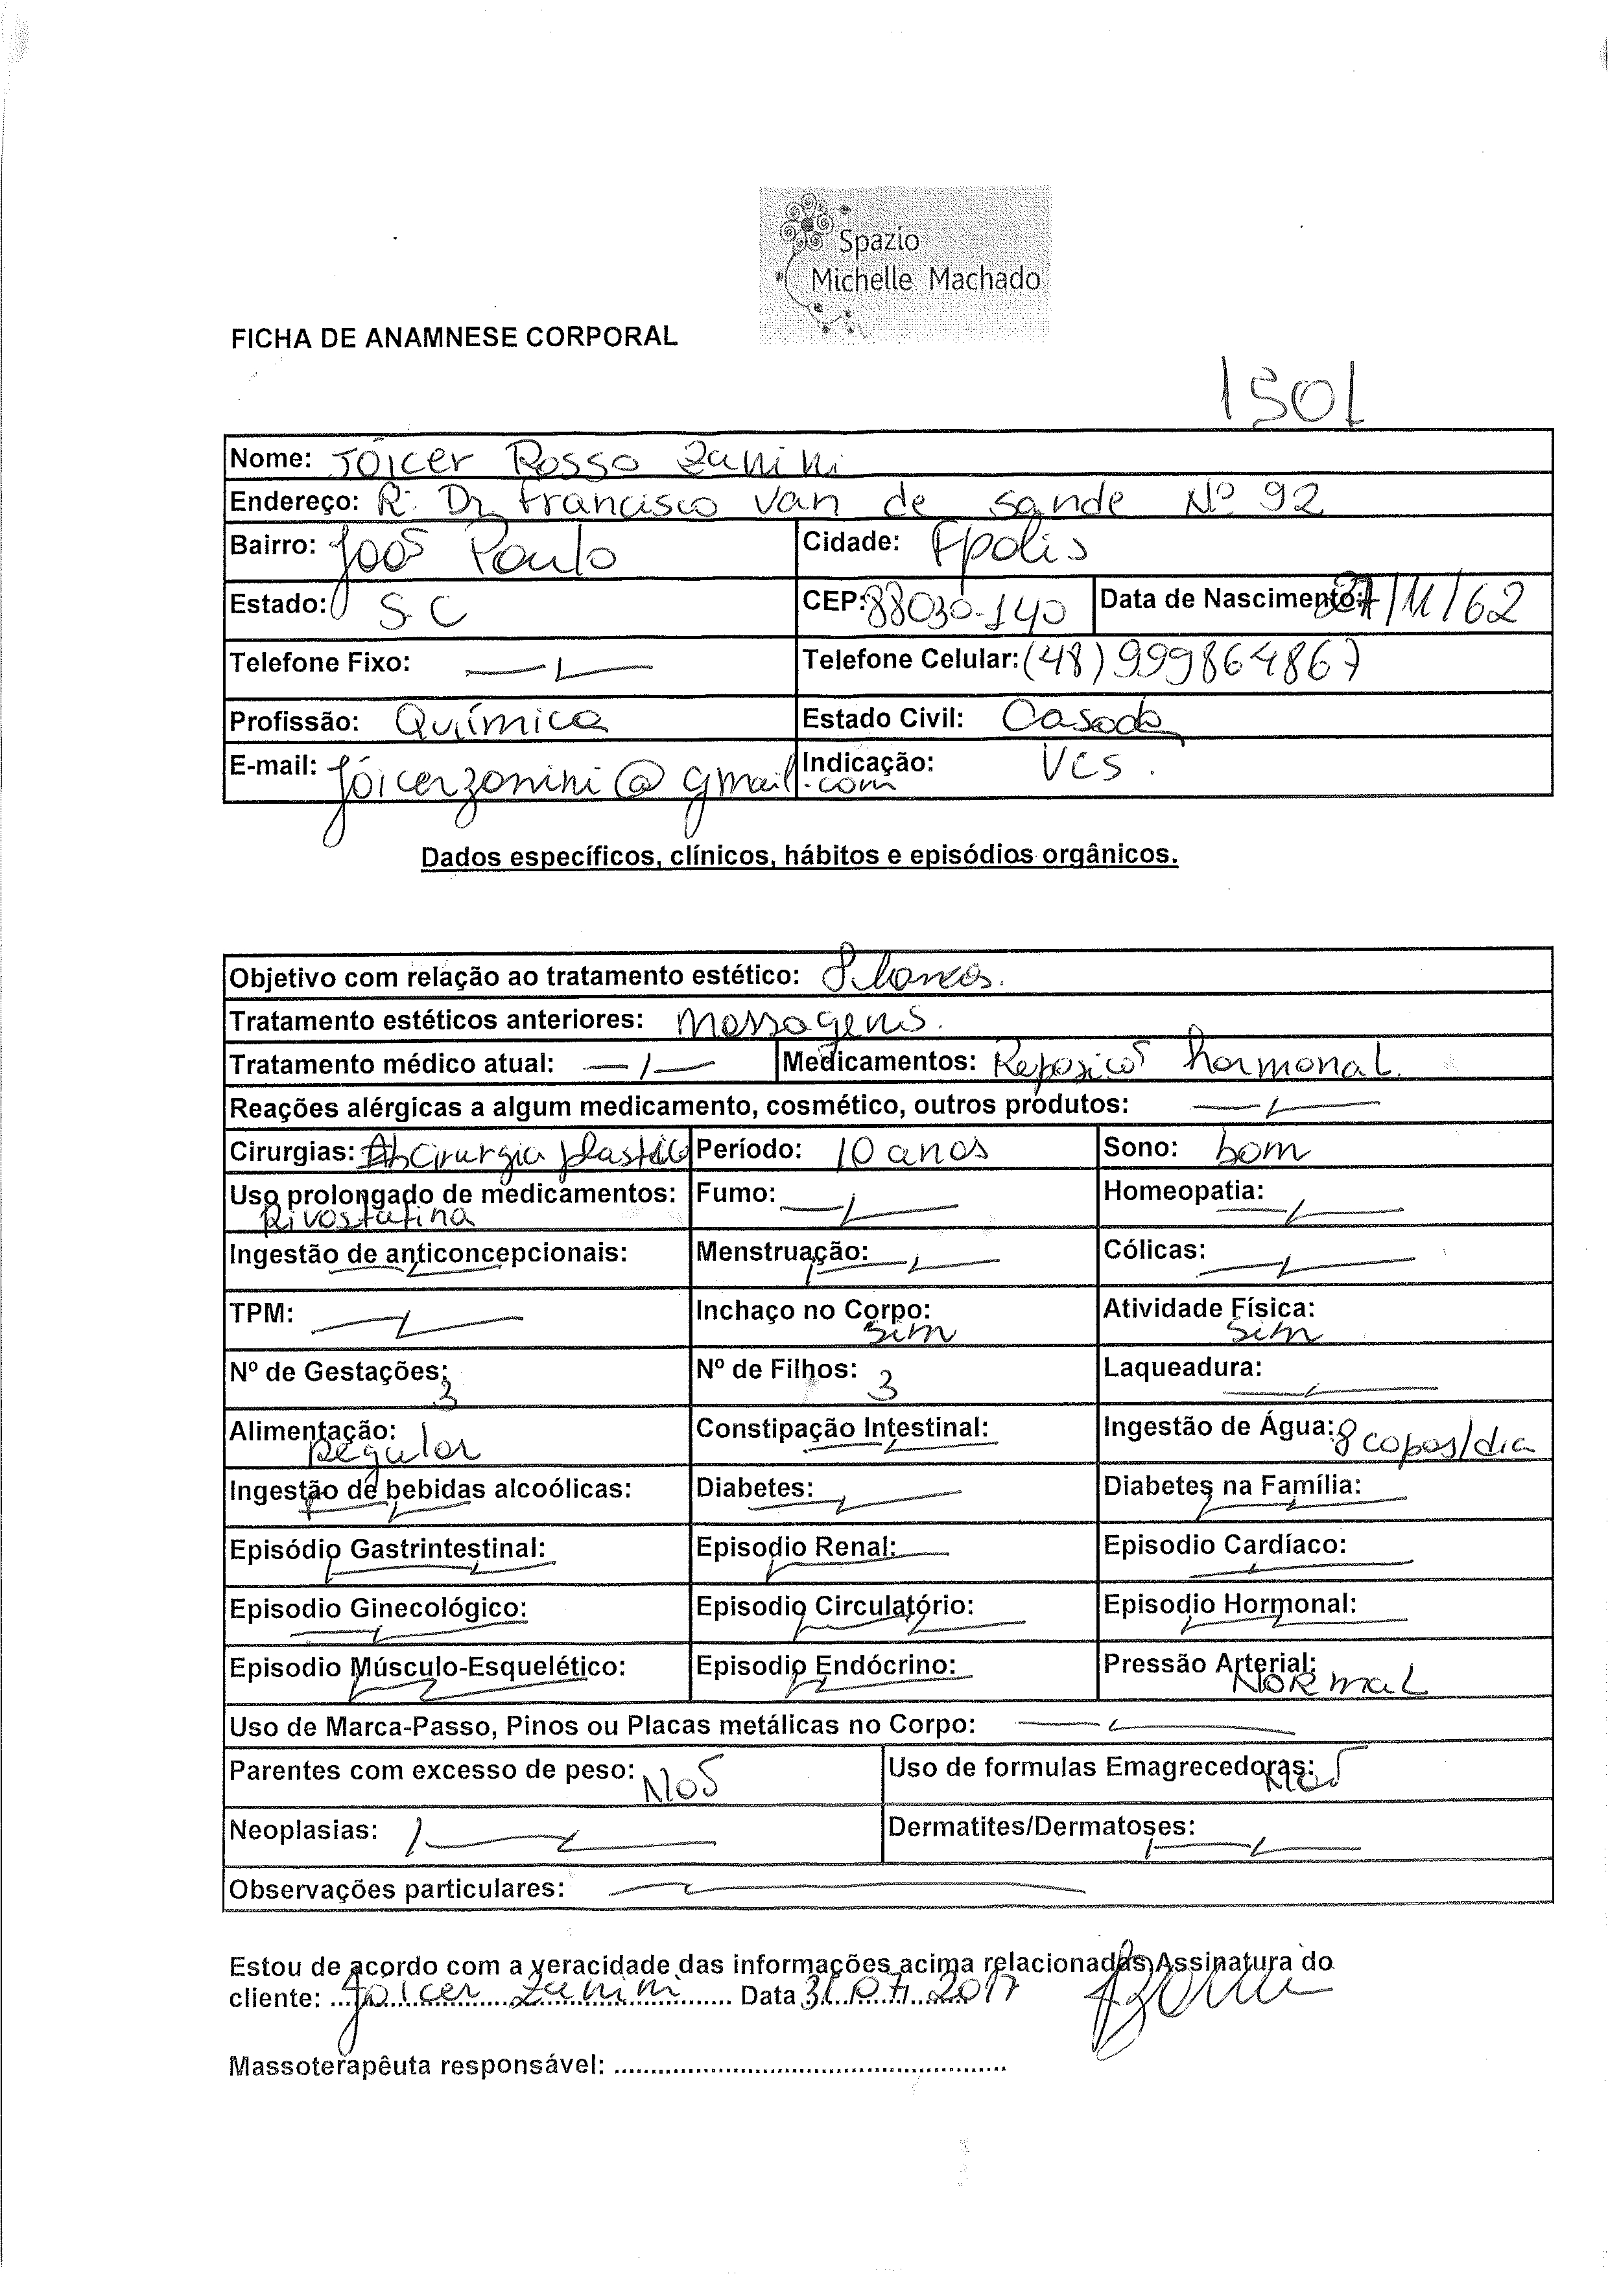 Spazio
Michelle Machado
FICHA DE ANAMNESE CORPORAL
1501
Nome: Jóicer Rosso Zanini
Endereço: R: Dr Francisco Van de Sande Nº 92
Bairro: João Paulo Cidade: Fpolis
Estado: SC CEP: 88030-140 Data de Nascimento: /11/62
Telefone Fixo: — Telefone Celular: (48) 999864867
Profissão: Química Estado Civil: Casada
E-mail: joicerzanini@gmail.com Indicação: Vcs.
Dados específicos, clínicos, hábitos e episódios orgânicos.
Objetivo com relação ao tratamento estético:
Tratamento estéticos anteriores: Massagens.
Tratamento médico atual: — Medicamentos: Reposição hormonal.
Reações alérgicas a algum medicamento, cosmético, outros produtos: —
Cirurgias: Cirurgia plástica Período: 10 anos Sono: bom
Uso prolongado de medicamentos: Fumo: — Homeopatia: —
Rivostatina
Ingestão de anticoncepcionais: — Menstruação: — Cólicas: —
TPM: — Inchaço no Corpo: Sim Atividade Física: Sim
Nº de Gestações: 3 Nº de Filhos: 3 Laqueadura: —
Alimentação: Regular Constipação Intestinal: — Ingestão de Água: 8 copos/dia
Ingestão de bebidas alcoólicas: — Diabetes: — Diabetes na Família: —
Episódio Gastrintestinal: — Episodio Renal: — Episodio Cardíaco: —
Episodio Ginecológico: — Episodio Circulatório: — Episodio Hormonal: —
Episodio Músculo-Esquelético: — Episodio Endócrino: — Pressão Arterial: Normal
Uso de Marca-Passo, Pinos ou Placas metálicas no Corpo: —
Parentes com excesso de peso: Não Uso de formulas Emagrecedoras: Não
Neoplasias: — Dermatites/Dermatoses: —
Observações particulares: —
Estou de acordo com a veracidade das informações acima relacionadas, Assinatura do
cliente: Joicer Zanini Data 31.07.2017
Massoterapêuta responsável: ....................................................